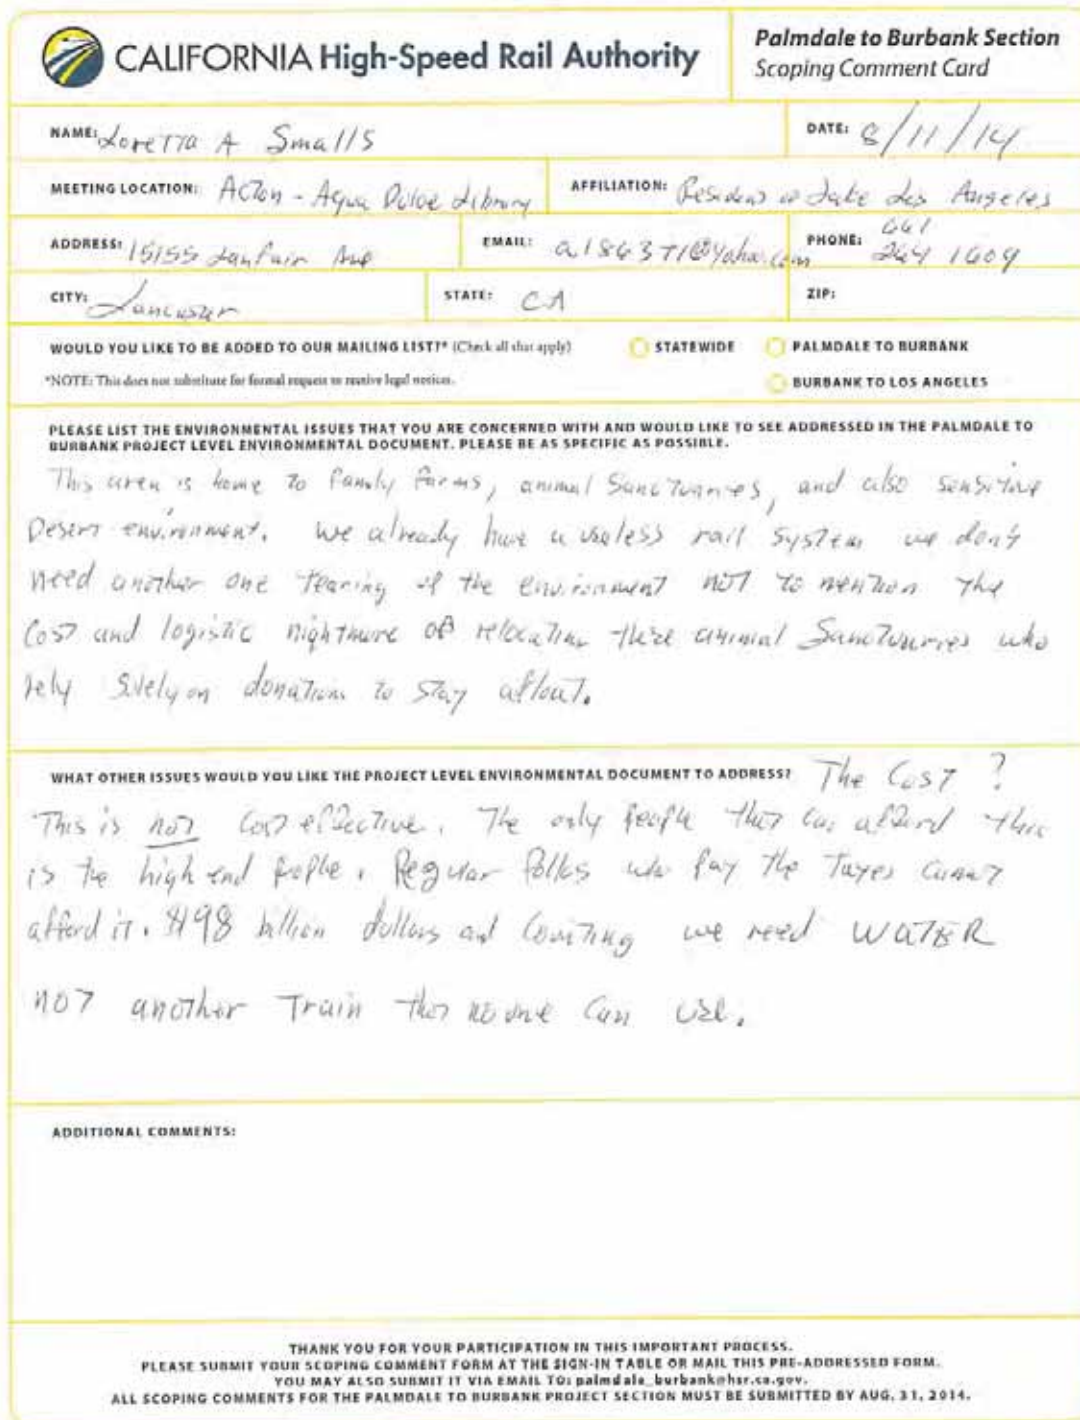 CALIFORNIA High-Speed Rail Authority
Palmdale to Burbank Section
Scoping Comment Card
NAME: Loretta A Smalls
DATE: 8/11/14
MEETING LOCATION: Acton - Agua Dulce Library
AFFILIATION: Resident Lake Los Angeles
ADDRESS: 15155 Lanfair Ave
EMAIL: a186371@yahoo.com
PHONE: 661
264 1609
CITY: Lancaster
STATE: CA
ZIP:
WOULD YOU LIKE TO BE ADDED TO OUR MAILING LIST?* (Check all that apply)
STATEWIDE
PALMDALE TO BURBANK
*NOTE: This does not substitute for formal request to receive legal notices.
BURBANK TO LOS ANGELES
PLEASE LIST THE ENVIRONMENTAL ISSUES THAT YOU ARE CONCERNED WITH AND WOULD LIKE TO SEE ADDRESSED IN THE PALMDALE TO
BURBANK PROJECT LEVEL ENVIRONMENTAL DOCUMENT. PLEASE BE AS SPECIFIC AS POSSIBLE.
This area is home to family farms, animal Sanctuaries, and also sensitive
Desert environment. We already have a useless rail system we don't
need another one tearing up the environment not to mention the
Cost and logistic nightmare of relocating these animal Sanctuaries who
rely solely on donations to stay afloat.
WHAT OTHER ISSUES WOULD YOU LIKE THE PROJECT LEVEL ENVIRONMENTAL DOCUMENT TO ADDRESS? The Cost?
This is not cost effective. The only people that can afford this
is the high end people. Regular folks who pay the taxes cannot
afford it. $98 billion dollars and counting we need WATER
not another Train that no one can use.
ADDITIONAL COMMENTS:
THANK YOU FOR YOUR PARTICIPATION IN THIS IMPORTANT PROCESS.
PLEASE SUBMIT YOUR SCOPING COMMENT FORM AT THE SIGN-IN TABLE OR MAIL THIS PRE-ADDRESSED FORM.
YOU MAY ALSO SUBMIT IT VIA EMAIL TO: palmdale_burbank@hsr.ca.gov.
ALL SCOPING COMMENTS FOR THE PALMDALE TO BURBANK PROJECT SECTION MUST BE SUBMITTED BY AUG. 31, 2014.